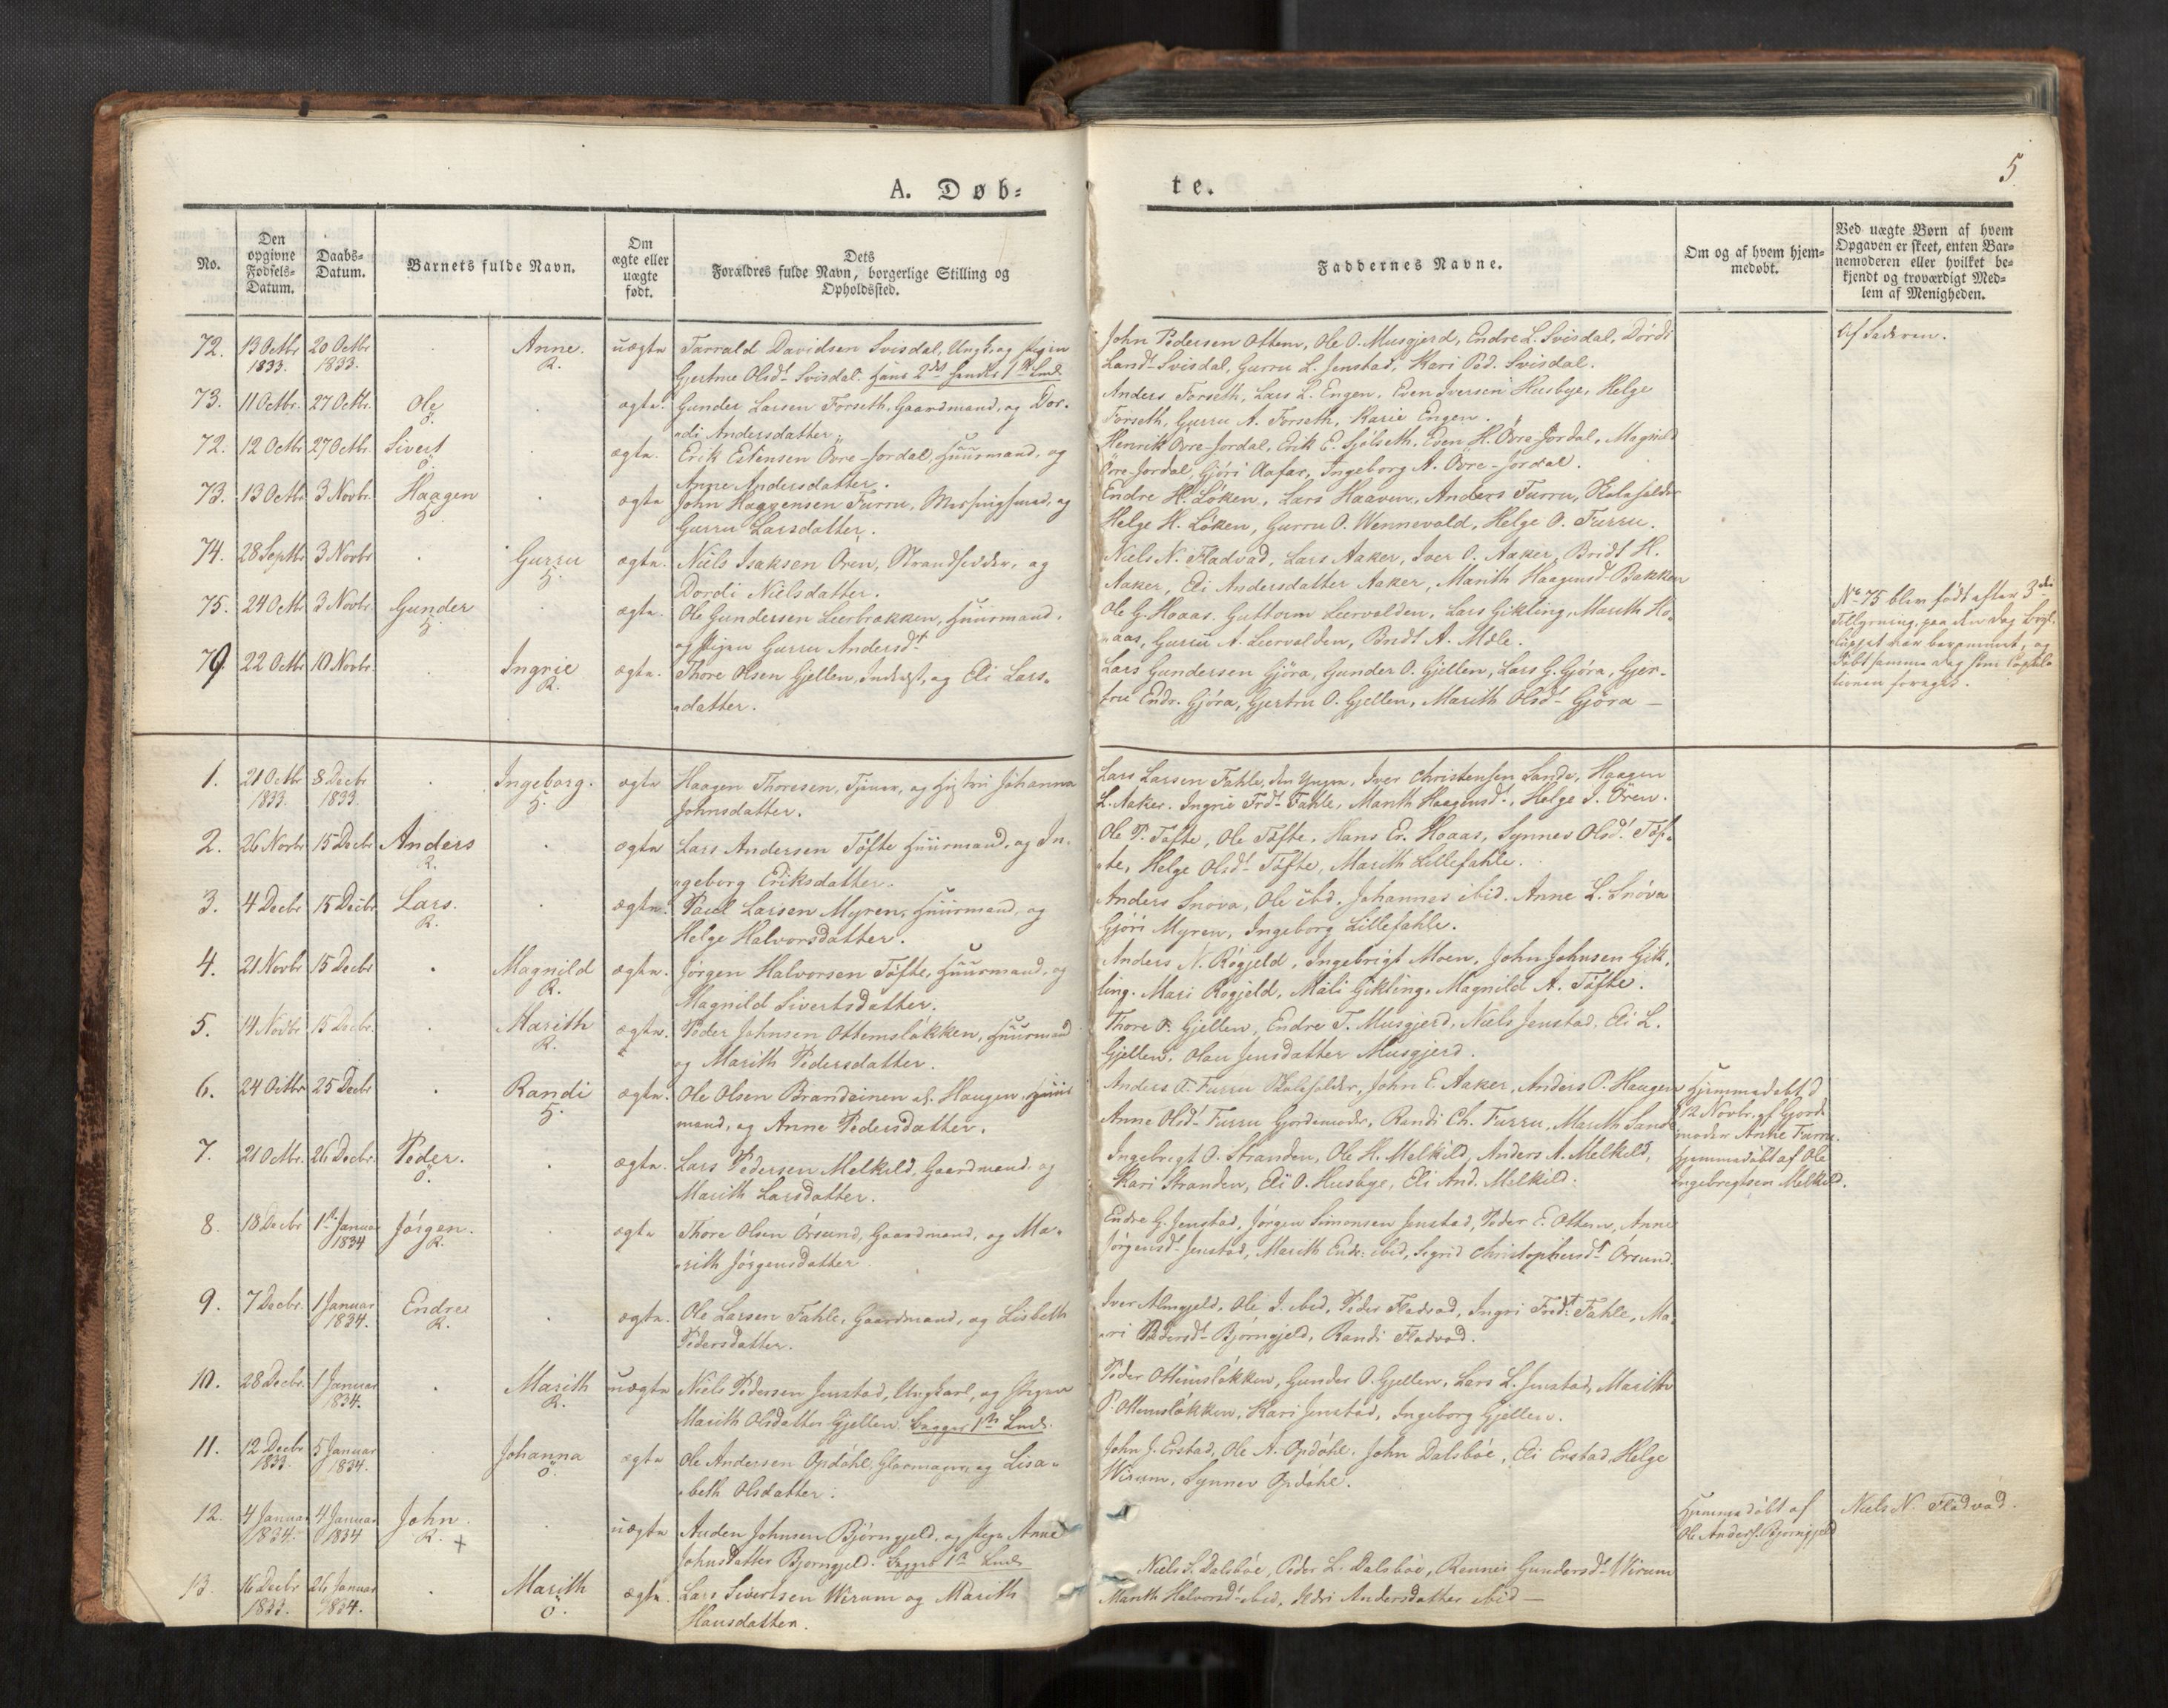 5
A. Døb=
te.
No.
Den opgivne Fødsels=Datum.
Daabs=Datum.
Barnets fulde Navn.
Om ægte eller uægte født.
Dets Forældres fulde Navn, borgerlige Stilling og Opholdssted.
Faddernes Navne.
Om og af hvem hjemmedøbt.
Ved uægte Børn af hvem Opgaven er skeet, enten Barnemoderen eller hvilket bekjendt og troværdigt Medlem af Menigheden.
72. 13 Octbr 1833. 20 Octbr 1833. Anne. R. uægte Tarrald Davidsen Svisdal, Ungk. og Pigen
Gjertrue Olsdt Svisdal. Hans 2det Hendes 1ste
John Pedersen Ottem, Ole O. Musgjerd, Endre L. Svisdal, Dórdi
Svisdal, Gurru L. Jenstad, Kari Ped. Svisdal.
Af Faderen.
73. 11 Octbr. 27 Octbr. Ole Ö. ægte. Gunder Larsen Forseth, Gaardmand, og Dor-
di Andersdatter.
Anders Forseth, Lars L. Engen, Even Iversen Husbye, Helge
Forseth, Gurru A. Forseth, Karie Engen.
72. 12 Octbr 27 Octbr. Sivert Ö. ægte. Erik Estensen Övre-Jordal, Huusmand, og
Anne Andersdatter.
Henrik Övre-Jordal, Erik E. Sjölseth, Even H. Övre-Jordal, Magnild
Övre-Jordal, Gjöri Aafar, Ingeborg A. Övre-Jordal.
73. 13 Octbr 3 Novbr. Haagen 5. ægte John Haagensen Furru, og
Gurru Larsdatter.
Endre H. Löken, Lars Haaven, Anders Furru, Skoleholder
Helge H. Löken, Gurru O. Wennevold, Helge O. Furru.
74. 28 Septbr 3 Novbr Gurru 5. ægte. Niels Isaksen Ören, Strandsidder, og
Dordi Nielsdatter.
Niels N. Fladvad, Lars Aaker, Iver O. Aaker, Bridt H.
Aaker, Eli Andersdatter Aaker, Marith Haagensdt Bakken
75. 24 Octbr 3 Novbr. Gunder 5. ægte. Ole Gundersen Leerbakken, Huusmand,
og Pigen Gurru Andersdt
Ole G. Hoaas, Guttorm Leervolden, Lars Gikling, Marith Ho-
aas, Gurru A. Leervolden, Bridt A. Mæle.
No 75 blev födt efter 3die
Tillysning, paa den Dag Bryl-
luppet var berammet, og
döbt samme Dag som Copula-
tionen foregik.
79. 22 Octbr 10 Novbr. Ingrie R. ægte. Thore Olsen Gjellen, Inderst, og Eli Lars-
datter.
Lars Gundersen Gjöra, Gunder O. Gjellen, Lars G. Gjöra, Gjer-
tru Endr. Gjöra, Gjertru O. Gjellen, Marith Olsdt Gjöra —
1. 21 Octbr 1833. 8 Decbr 1833. Ingeborg. 5. ægte Haagen Thoresen, Tjener, og Hustru Johanna
Johnsdatter.
Lars Larsen Fahle, den Yngre, Iver Christensen Sande, Haagen
L. Aaker. Ingrie Frdt Fahle, Marith Haagensdt, Helge I. Ören.
2. 26 Novbr 15 Decbr Anders R. ægte Lars Andersen Töfte Huusmand, og In-
geborg Eriksdatter.
Ole P. Töfte, Ole Töfte, Hans Er. Hoaas, Synnev Olsdt Töf-
te, Helge Olsdt Töfte, Marith Lillefahle.
3. 4 Decbr 15 Decbr Lars. R. ægte. Paul Larsen Myren, Huusmand, og
Helge Halvorsdatter.
Anders Snöva, Ole ibd, Johannes ibid. Anne L. Snöva
Gjöri Myren, Ingeborg Lillefahle.
4. 21 Novbr 15 Decbr Magnild R. ægte. Jörgen Halvorsen Töfte, Huusmand, og
Magnild Sivertsdatter.
Anders N. Rogjeld, Ingebrigt Moen, John Johnsen Gik-
ling. Mari Rogjeld, Mali Gikling, Magnild A. Töfte.
5. 14 Novbr 15 Decbr. Marith R. ægte. Peder Johnsen Ottemslökken, Huusmand
og Marith Pedersdatter.
Thore O. Gjellen, Endre T. Musgjerd, Niels Jenstad, Eli L.
Gjellen, Olau Jensdatter Musgjerd.
6. 24 Octbr 25 Decbr Randi 5. ægte. Ole Olsen Brandeinen Haugen, Huus-
mand, og Anne Pedersdatter.
Anders O. Furru Skoleholder, John E. Aaker, Anders P. Haugen
Anne Olsdt Furru Gjordemoder, Randi Ch. Furru, Marith Sande
Hjemmedöbt d
12 Novbr. af Gjorde
moder Anne Furru.
7. 21 Octbr. 26 Decbr. Peder. Ö. ægte. Lars Pedersen Melkild, Gaardmand, og
Marith Larsdatter.
Ingebrigt O. Stranden, Ole H. Melkild, Anders A. Melkild,
Kari Stranden, Eli O. Husbye, Eli And. Melkild.
Hjemmedöbt af Ole
Ingebregtsen Melkild.
8. 18 Decbr 1ste Januar 1834 Jörgen. R. ægte Thore Olsen Örsund, Gaardmand, og Ma-
rith Jörgensdatter
Endre G. Jenstad, Jörgen Simonsen Jenstad, Peder E. Ottem, Anne
Jörgensdt Jenstad, Marith Endr: ibid, Sigrid Christophersdt Örsund.
9. 7 Decbr. 1 Januar 1834. Endre R. ægte. Ole Larsen Fahle, Gaardmand, og Lisbeth
Pedersdatter.
Iver Almgjeld, Ole I. ibid, Peder Fladvad, Ingri Fredt Fahle, Ma-
ri Pedersdt Björngjeld, Randi Fladvad.
10. 28 Decbr. 1 Januar 1834. Marith R. uægte Niels Pedersen Jenstad, Ungkarl, og Pigen
Marith Olsdatter Gjellen. Begges 1ste
Peder Ottemslökken, Gunder O. Gjellen, Lars L. Jenstad, Marith
P. Ottemslökken, Kari Jenstad, Ingeborg Gjellen.
11. 12 Decbr 1833. 5 Januar 1834. Johanna Ö. ægte Ole Andersen Opdöhl, Glarmager, og Lisa-
beth Olsdatter.
John J. Erstad, Ole A. Opdöhl, John Dalsböe, Eli Erstad, Helge
Wirum, Synnev Opdöhl.
12. 4 Januar 1834. 4 Januar 1834 John. R. + uægte Auden Johnsen Björngjeld, og Pige Anne
Johnsdatter Bjorngjeld. Begges 1ste
Hjemmedöbt af
Ole Anders. Björngjeld
Niels N. Fladvad.
13. 16 Decbr 1833. 26 Januar 1834. Marith Ö. ægte. Lars Sivertsen Wirum og Marith
Hansdatter.
Niels S. Dalsböe, Peder L. Dalsböe, Rennei Gundersdt Wirum
Marith Halvorsdt ibid, Ildri Andersdatter ibid —